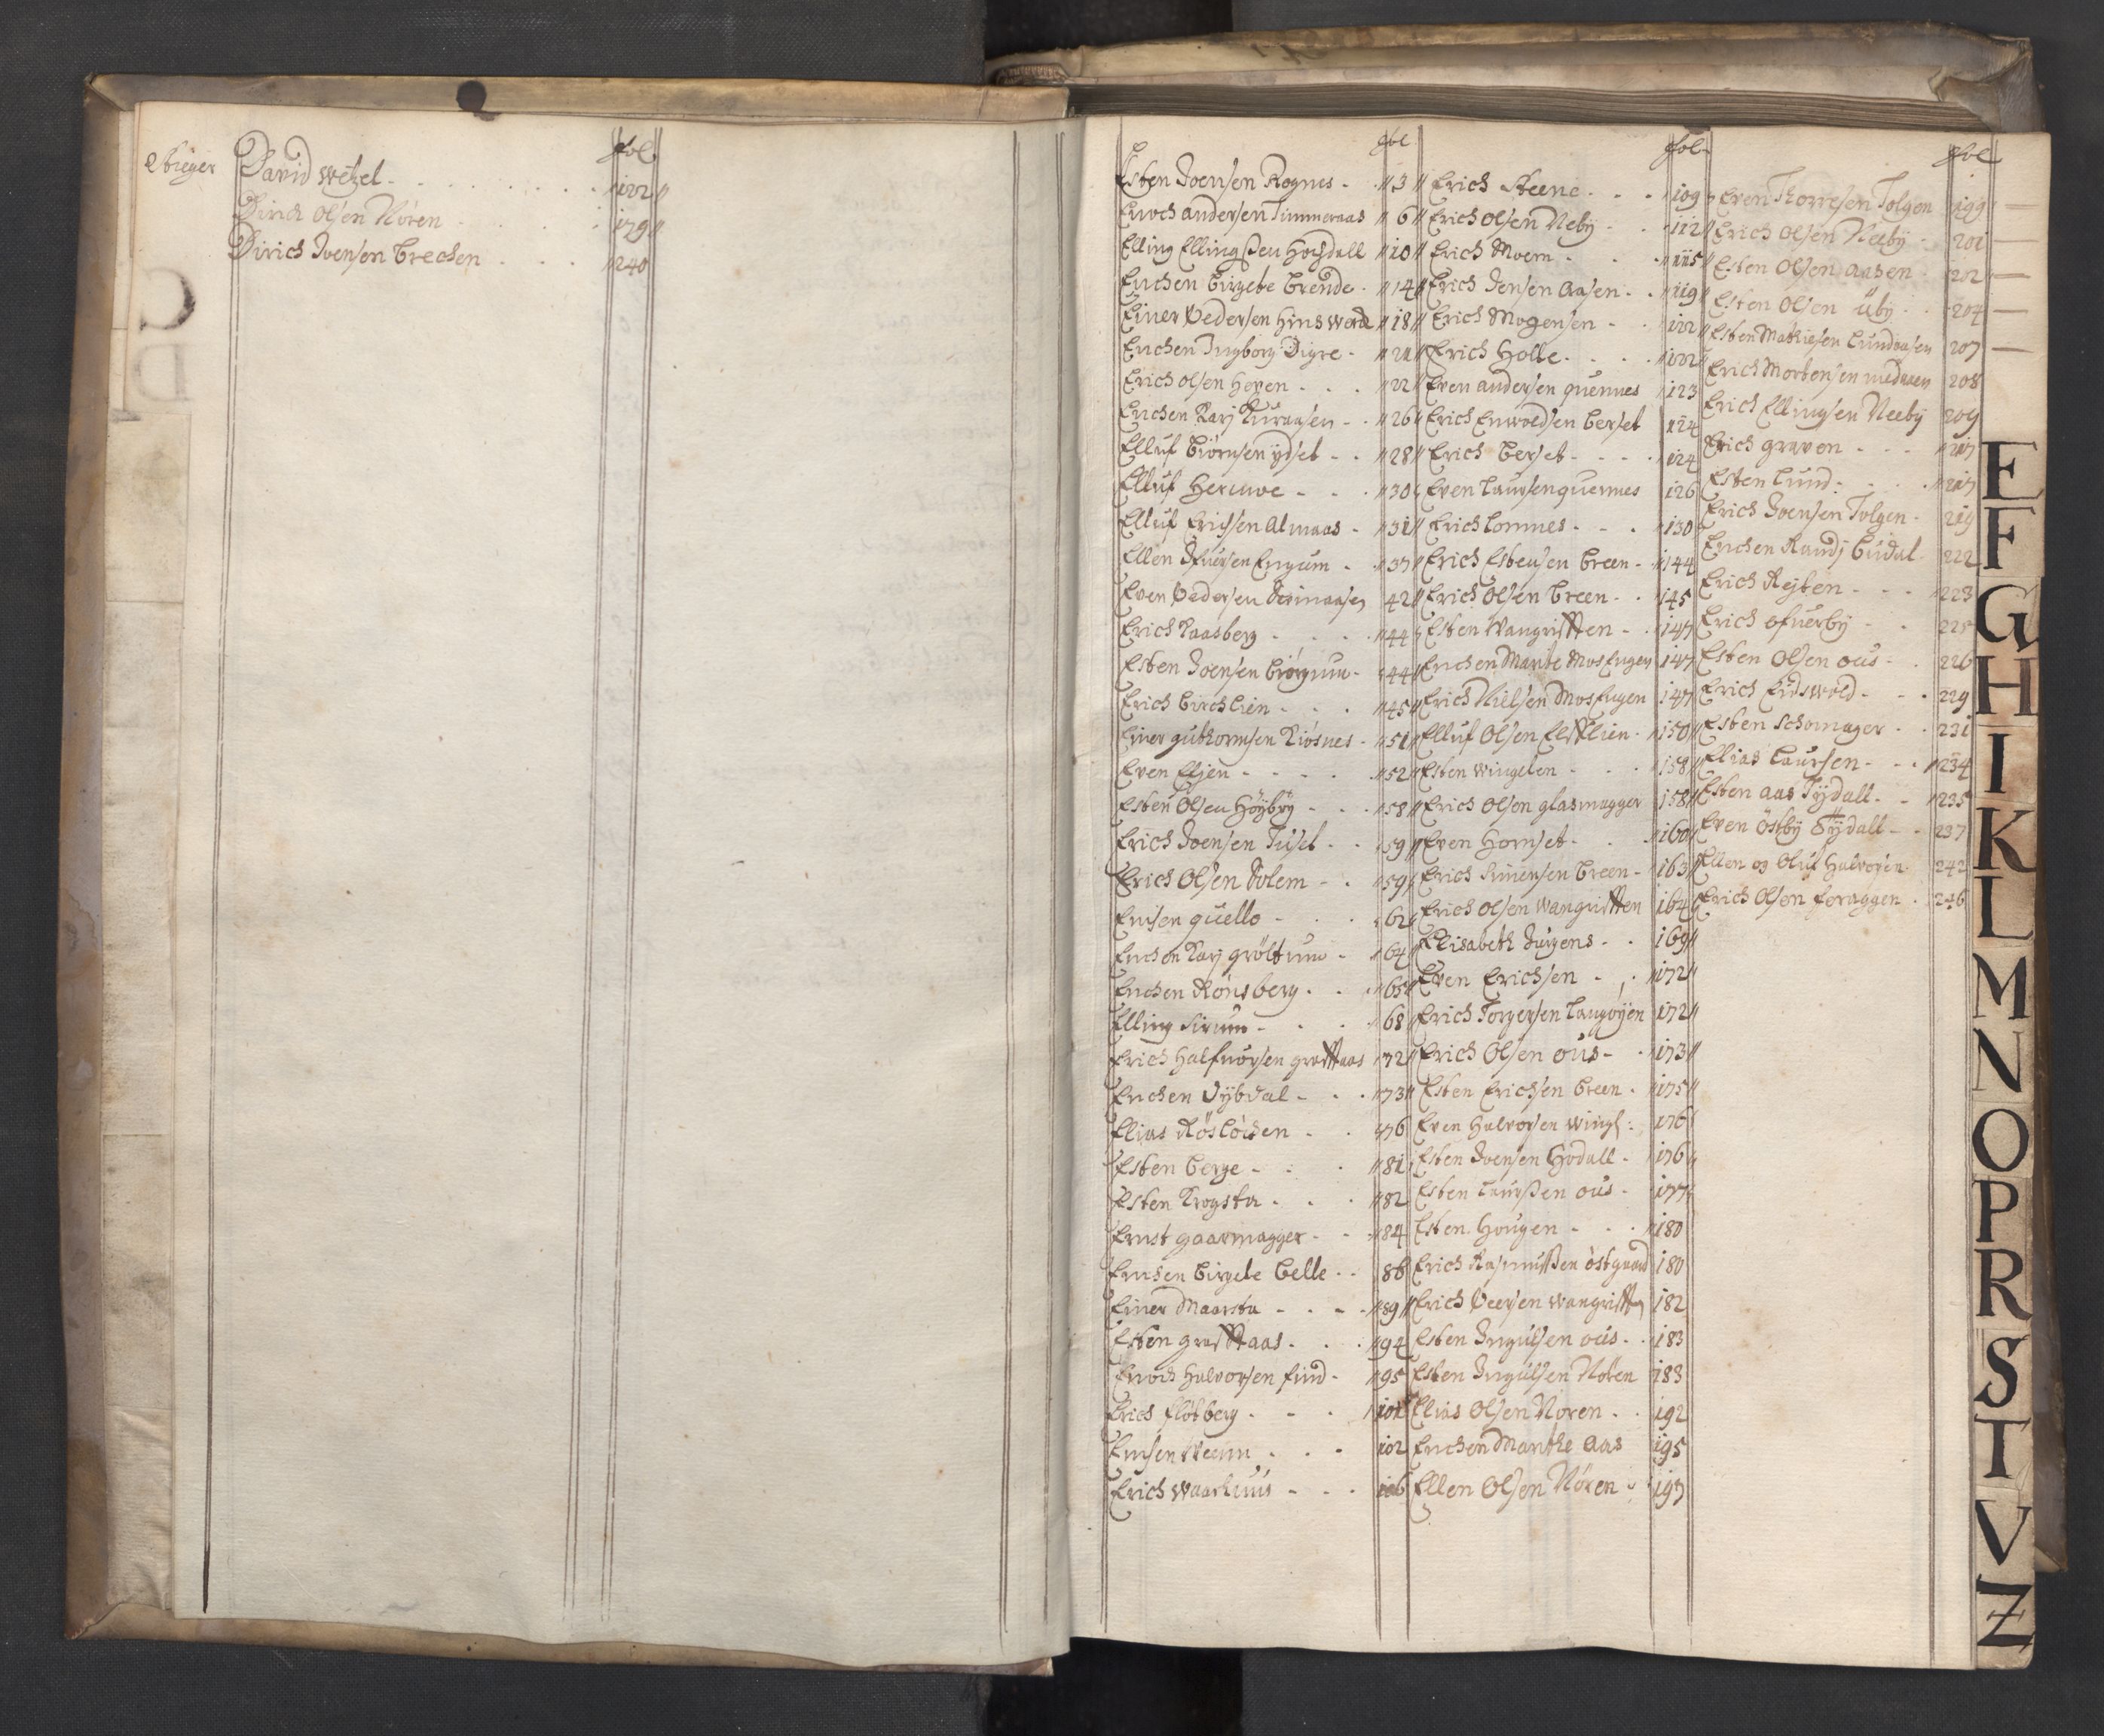 fol
Stieger David Wetzel - 122
Dirich Olsen Nören 179
Dirich Joensen Brechen 240
fol
Esten Joensen Rognes - 3
Enoch andersen Timmeraas 6
Elling Ellingßen Hochdall 10
Enchen Birgete Brende - 14
Einer Pedersen Hinsword 18
Enchen Ingborg Digre - 21
Erich olsen Hoven - 22
Enchen Karj Kuraasen - 26
Elluf Biörnsen ydset - 28
Elluf Heruwe - 30
Elluf Erichsen Almaas - 31
Ellen Ifuersen Engum - 37
Even Pedersen 42
Erich Kaasberg - 44
Esten Joensen Biörgum - 44
Erich Birchlien - 45
Einer guthormsen Kiösnes - 51
Even Eljen - 52
Esten Olsen Höyby - 58
Erich Joensen Tuset - 59
Erich Olsen Solem - 59
Enchen quello - 62
Enchen Karj gröltum - 64
Enchen Rönsberg - 65
Elling Sirum - 68
Erich Halfuorsen graffaas 72
Enchen Dybdal - 73
Elias Röslöchen - 76
Esten Berge - 81
Esten Krogsta - 82
Ernst gaarmagger - 84
Enchen Birgete Belle - 86
Einer Maarsta - 89
Esten graffaas - 94
Enoch Halvorsen find - 95
Erich flötberg - 101
Enchen Weenn - 102
Erich Waarhuus - 106
fol
Erich Steene - 109
Erich Olsen Neby - 112
Erich Moem - 115
Erich Jensen Aasen - 119
Erich Mogensen - 122
Erich Holle - 122
Even andersen quennes 123
Erich Enwoldsen Berset 124
Erich Berset - 124
Even Laursen quennes 126
Erich Lomnes - 130
Erich Estensen Breen - 144
Erich Olsen Breen - 145
Esten Wangriften - 147
Enchen Marite MosEngen 147
Erich Nielsen MosEngen 147
Elluf Olsen Elfflien - 150
Esten Wingelen - 158
Erich Olsen glasmagger 158
Even Hornset - 160
Erich Simensen Breen - 163
Erich Olsen Wangriften 164
Elisabeth Jurgens - 169
Even Erichsen - 172
Erich Torgersen Langöyen 172
Erich Olsen ous - 173
Esten Erichsen Breen - 175
Even Halvorsen Wingl: 176
Esten Joensen Hodall - 176
Esten Laurßen ous - 177
Esten Hougen - 180
Erich Rasmußen östgaard 180
Erich Peersen Wangriften 182
Esten Ingulsen ous - 183
Esten Ingulsen Nören 183
Elias Olsen Nören - 192
Enchen Marithe Aas 195
Ellen Olsen Nören - 197
fol
Even Thorresen Tolgen 199
Erich Olsen Neeby - 201
Esten Olsen aasen 202
Esten Olsen Üby - 204
Esten Mathiesen Lundaasen 207
Erich Mortensen medaaen 208
Erich Ellingsen Neeby 209
Erich graven - 217
Esten Lund - 217
Erich Joensen Tolgen - 219
Enchen Randj Budal 222
Erich Rejten - 223
Erich ofuerby - 225
Esten Olsen ous - 226
Erich Eidswold - 229
Esten Schomager - 231
Elias Laursen - 234
Esten aas Tydall - 235
Even östby Tydall - 237
Ellen og Oluf Halvorsen 242
Erich Olsen foraggen - 246
E
F
G
H
I
K
L
M
N
O
P
R
S
T
V
Z